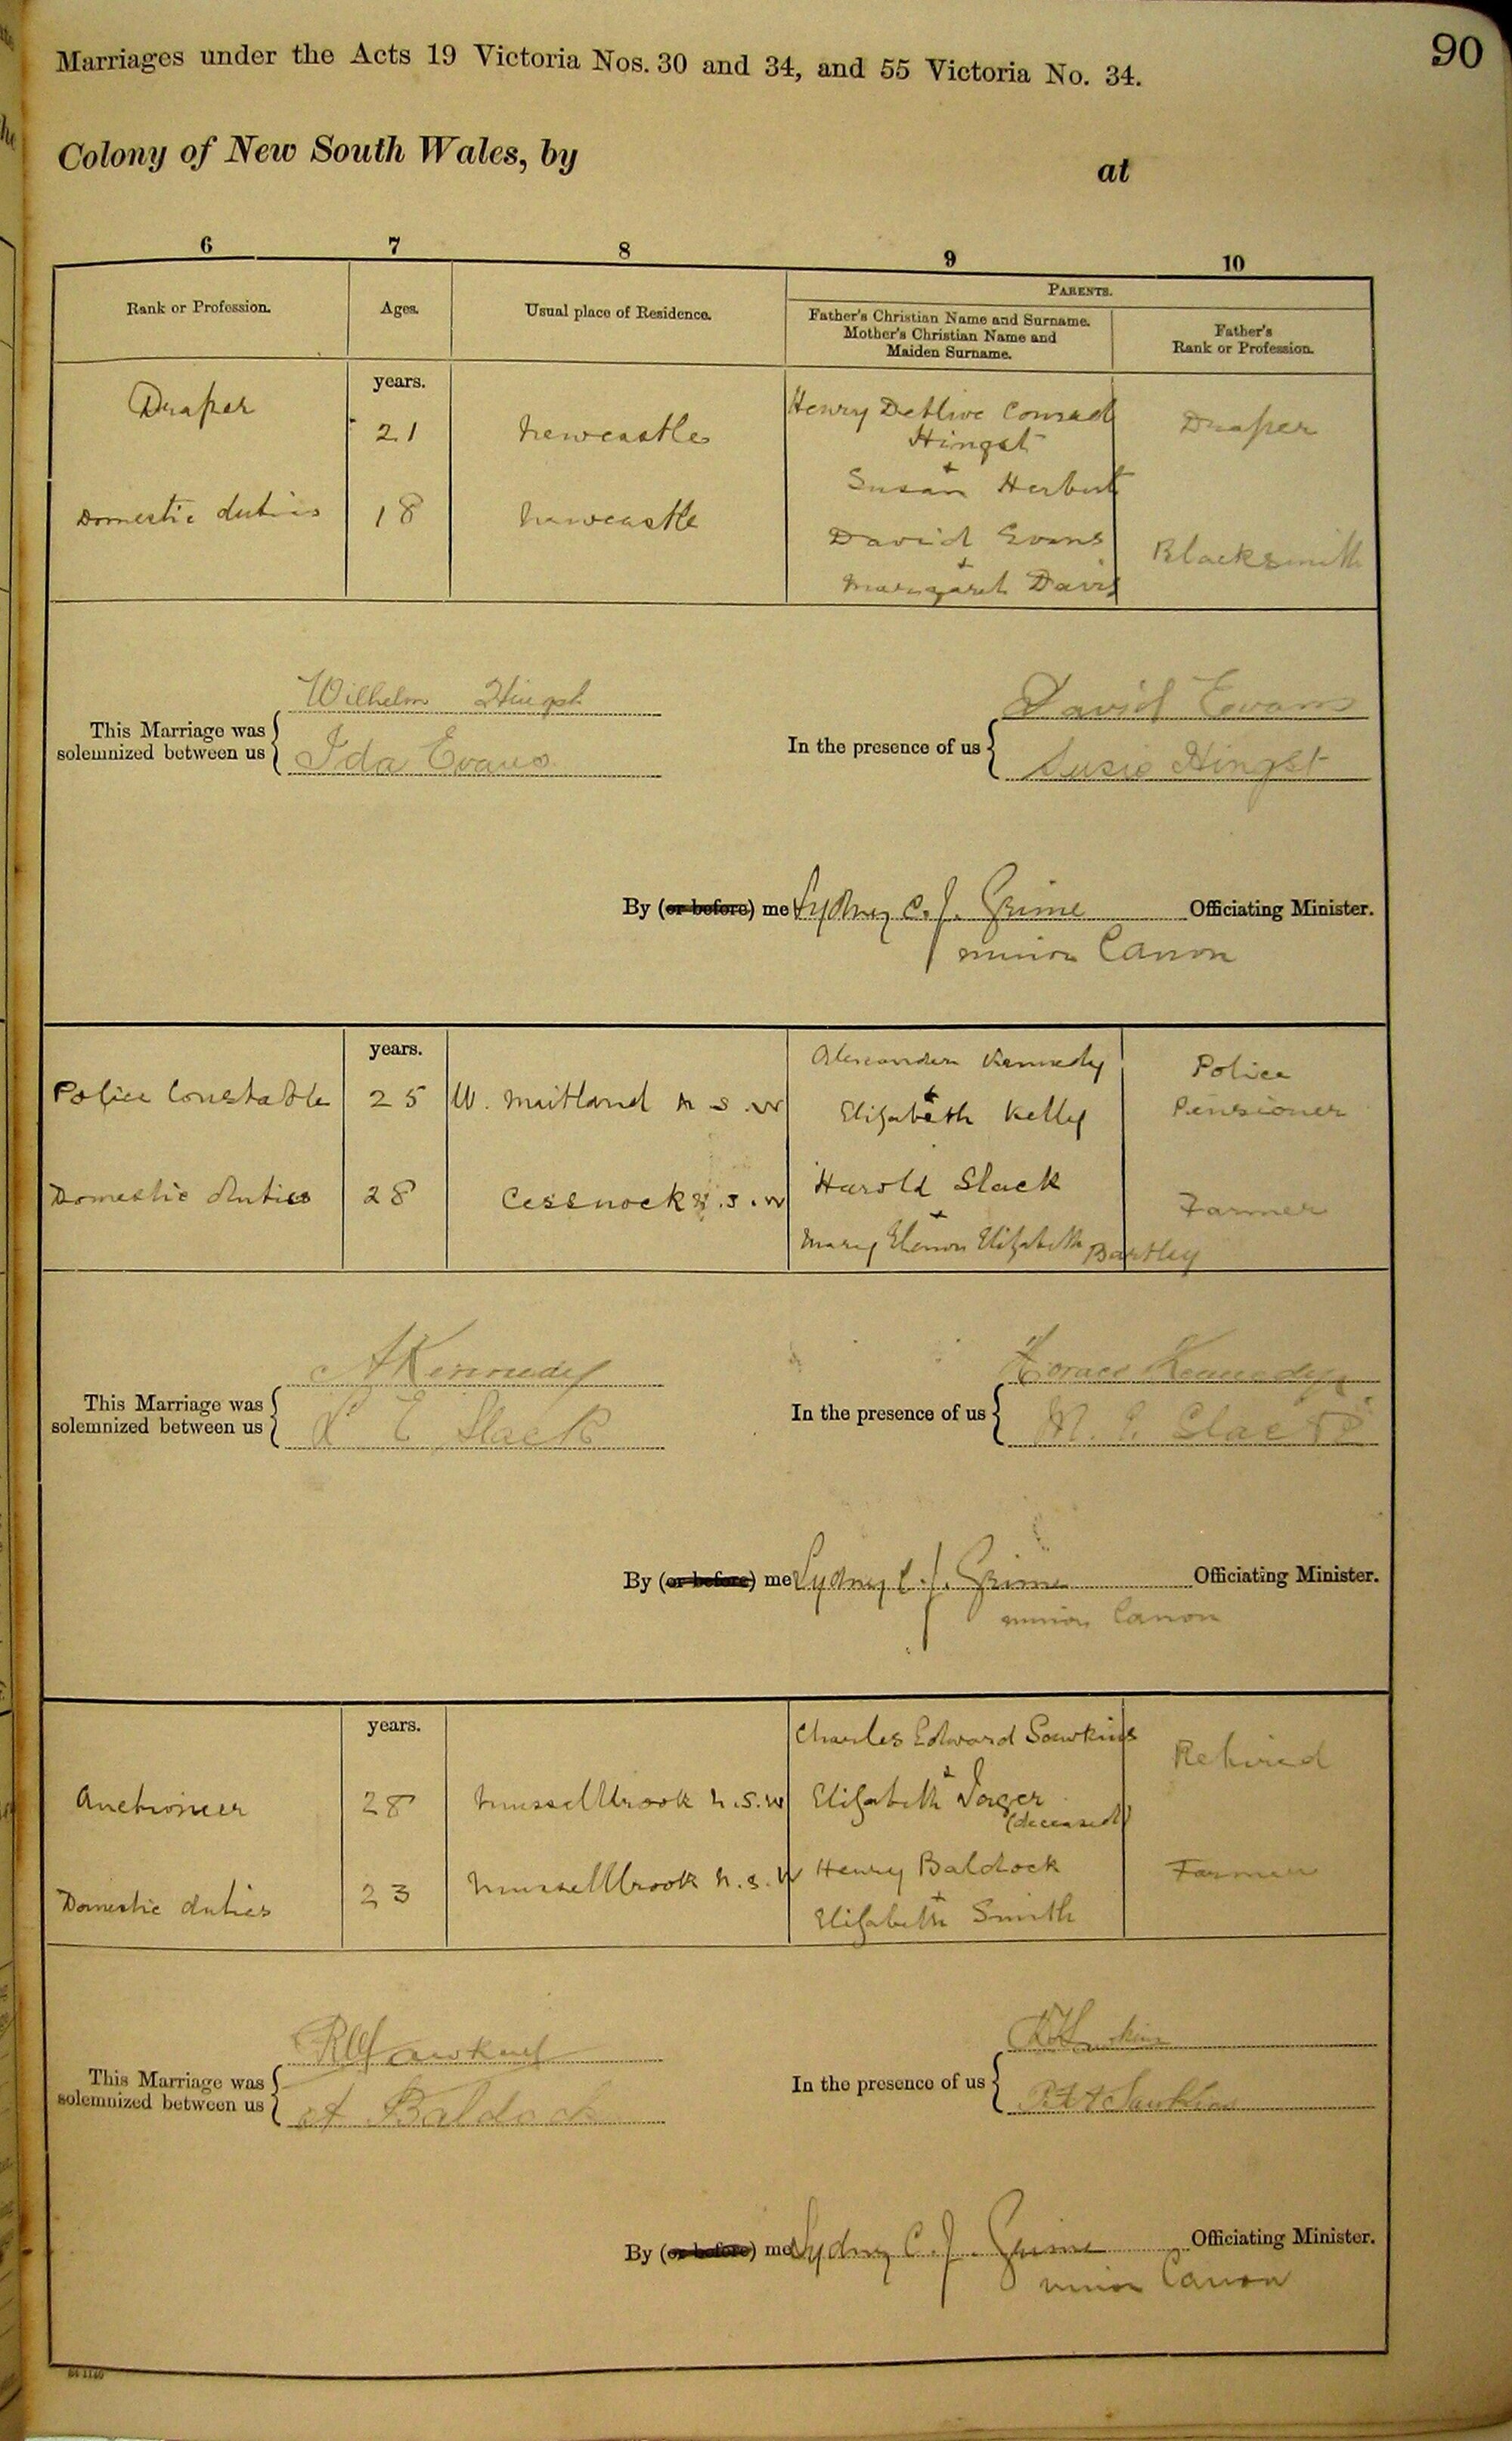 90
Marriages under the Acts 19 Victoria Nos. 30 and 34, and 55 Victoria No. 34.
Colony of New South Wales, by at
6 7 8 9 10
PARENTS.
Rank or Profession. Ages. Usual place of Residence.
Father's Christian Name and Surname.
Mother's Christian Name and
Maiden Surname.
Father's
Rank or Profession.
years.
Draper 21 Newcastle Henry Detlive Conrad Draper
Hingst
+
Susan Herbert
Domestic duties 18 Newcastle David Evans Blacksmith
+
Margaret Davis
Wilhelm Hingst David Evans
This Marriage was
solemnized between us In the presence of us
Ida Evans Susie Hingst
By (or before) me Sydney C. J. Grime Officiating Minister.
minor Canon
years.
Police Constable 25 W. Maitland N S.W Alexander Kennedy Police
+
Elizabeth Kelly Pensioner
Domestic duties 28 Cessnock N.S.W Harold Slack Farmer
+
Mary Elenor Elizabeth Bartley
A Kennedy Horace Kennedy
This Marriage was
solemnized between us In the presence of us
E Slack M. E. Slack
By (or before) me Sydney C. J. Grime Officiating Minister.
minor Canon
years.
Charles Edward Sawkins Retired
+
Auctioneer 28 Mussellbrook N.S.W Elizabeth Jager
(deceased)
Domestic duties 23 Mussellbrook N.S.W Henry Baldock Farmer
+
Elizabeth Smith
Sawkins
This Marriage was
solemnized between us In the presence of us
A Baldock Sawkins
By (or before) me Sydney C. J. Grime Officiating Minister.
minor Canon